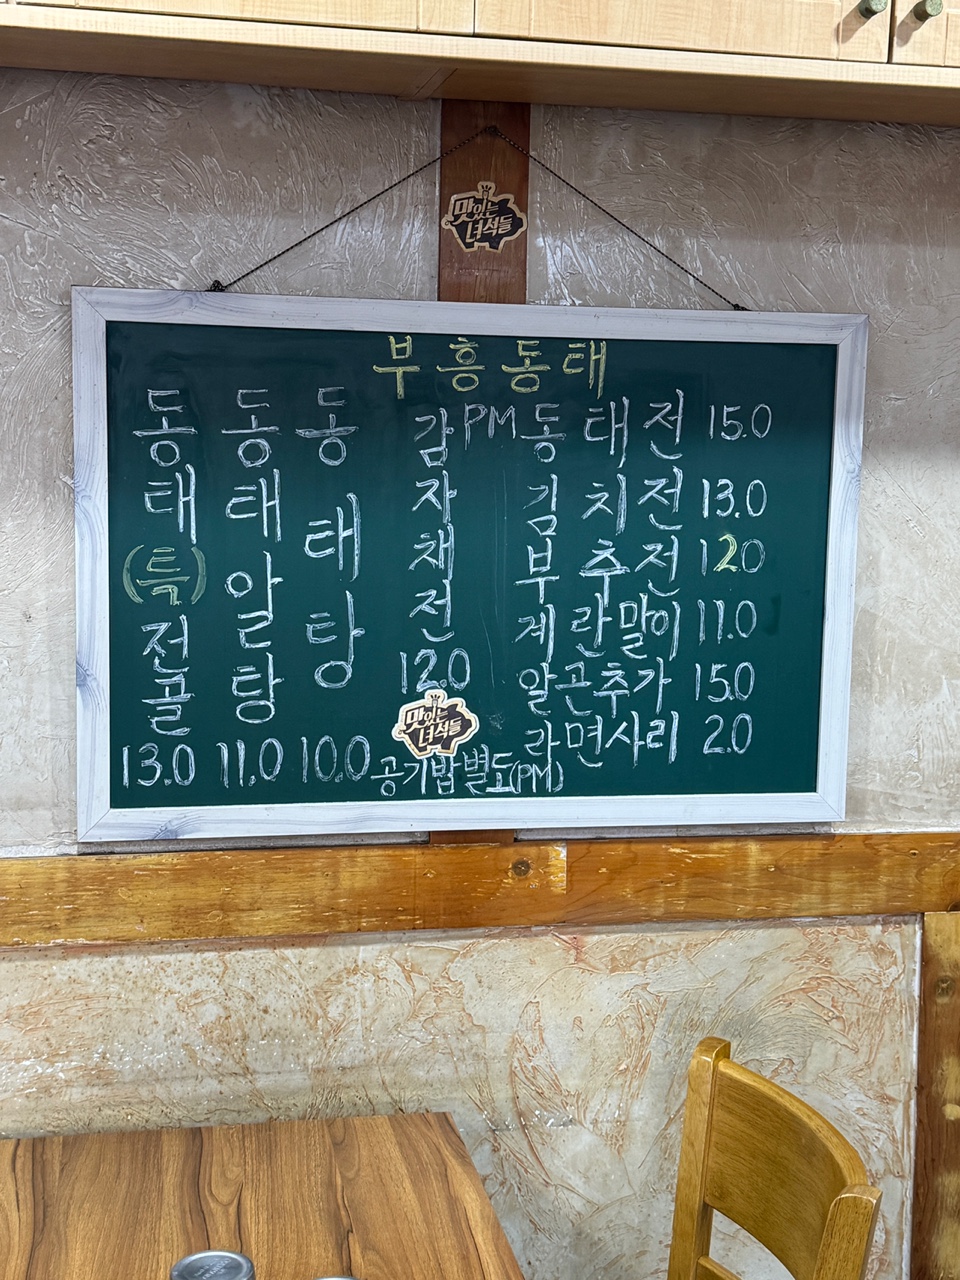 맛있는
녀석들
부흥동태
동태(특)전골 13.0
동태알탕 11.0
동태탕 10.0
감자채전 12.0
PM
동태전 15.0
김치전 13.0
부추전 12.0
계란말이 11.0
알곤추가 15.0
라면사리 2.0
맛있는
녀석들
공기밥별도(PM)